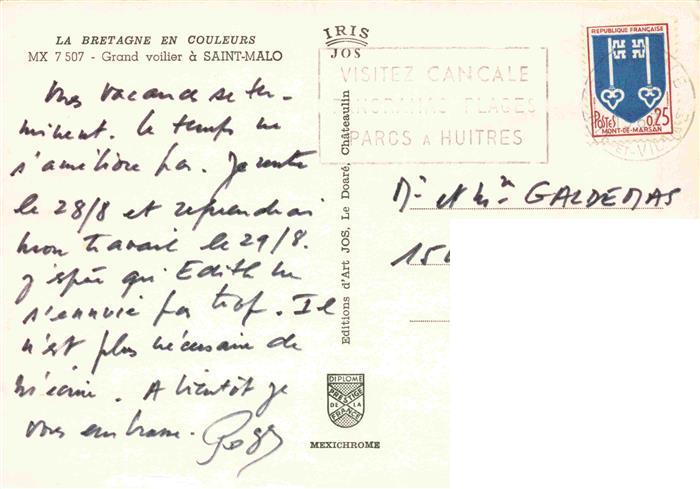 LA BRETAGNE EN COULEURS
MX 7 507 - Grand voilier à SAINT-MALO
vacance se ter-
minent. le temps ne
s'améliore pas. Je rentre
le 28/8 et reprendrai
mon travail le 29/8.
j'espère qu' Edith ne
s'ennuie pas trop. Il
n'est plus nécessaire de
m'écrire. A bientôt je
vous embrasse.
IRIS
JOS
Editions d'Art JOS, Le Doaré, Châteaulin
DIPLOME
PRESTIGE
DE LA
FRANCE
MEXICHROME
VISITEZ CANCALE
PANORAMAS PLAGES
PARCS A HUITRES
REPUBLIQUE FRANÇAISE
POSTES 0,25
MONT-DE-MARSAN
Mr et Mme GALDEMAS